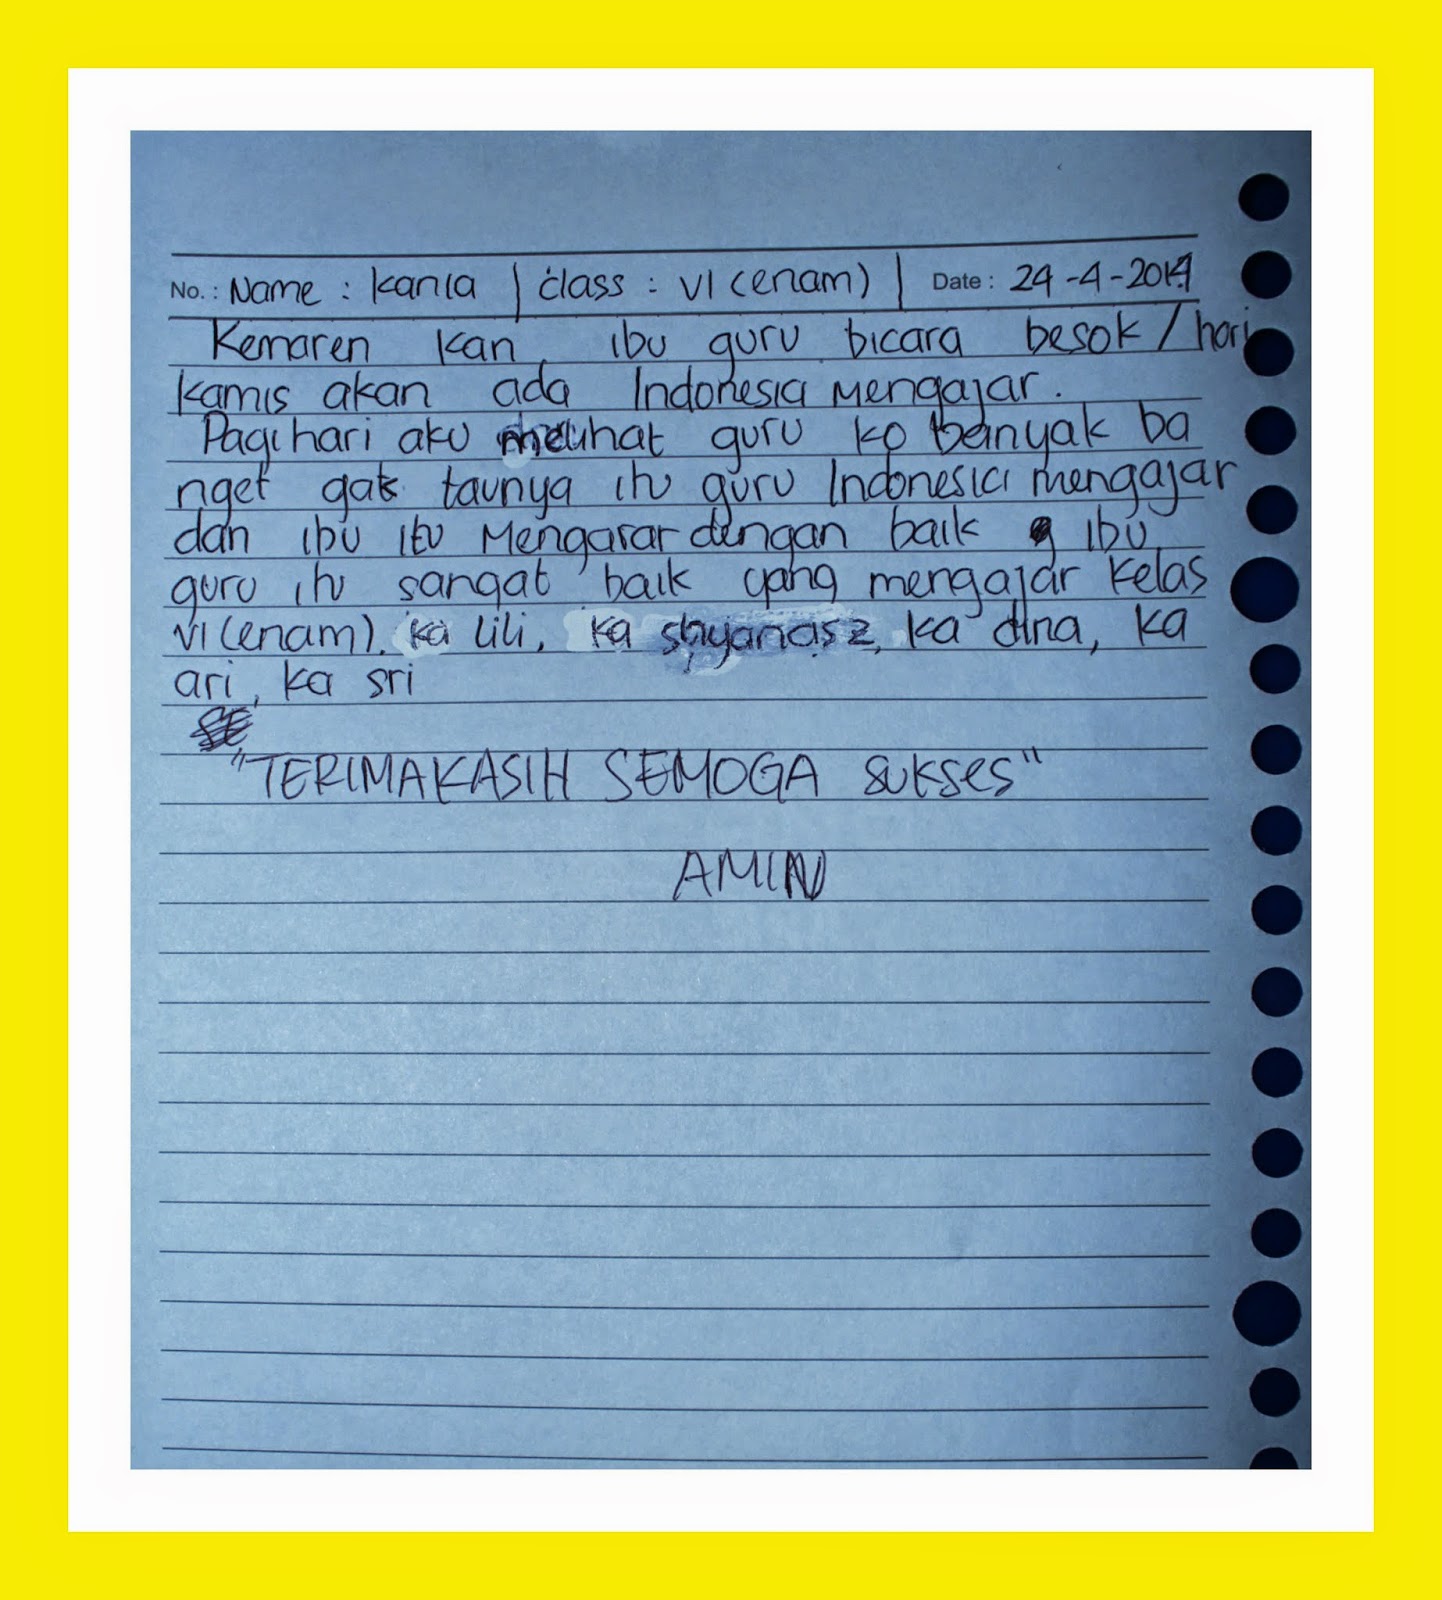 No. : Name : Kania | Class : VI (enam) | Date : 24-4-2014
Kemaren kan, ibu guru bicara besok / hari
kamis akan ada Indonesia Mengajar.
Pagi hari aku melihat guru ko banyak ba
nget gak taunya itu guru Indonesia mengajar
dan ibu itu Mengarar dengan baik ibu
guru itu sangat baik yang mengajar kelas
VI (enam). ka lili, ka shyanasz, ka dina, ka
ari, ka sri
"TERIMAKASIH SEMOGA SUKSES"
AMIN